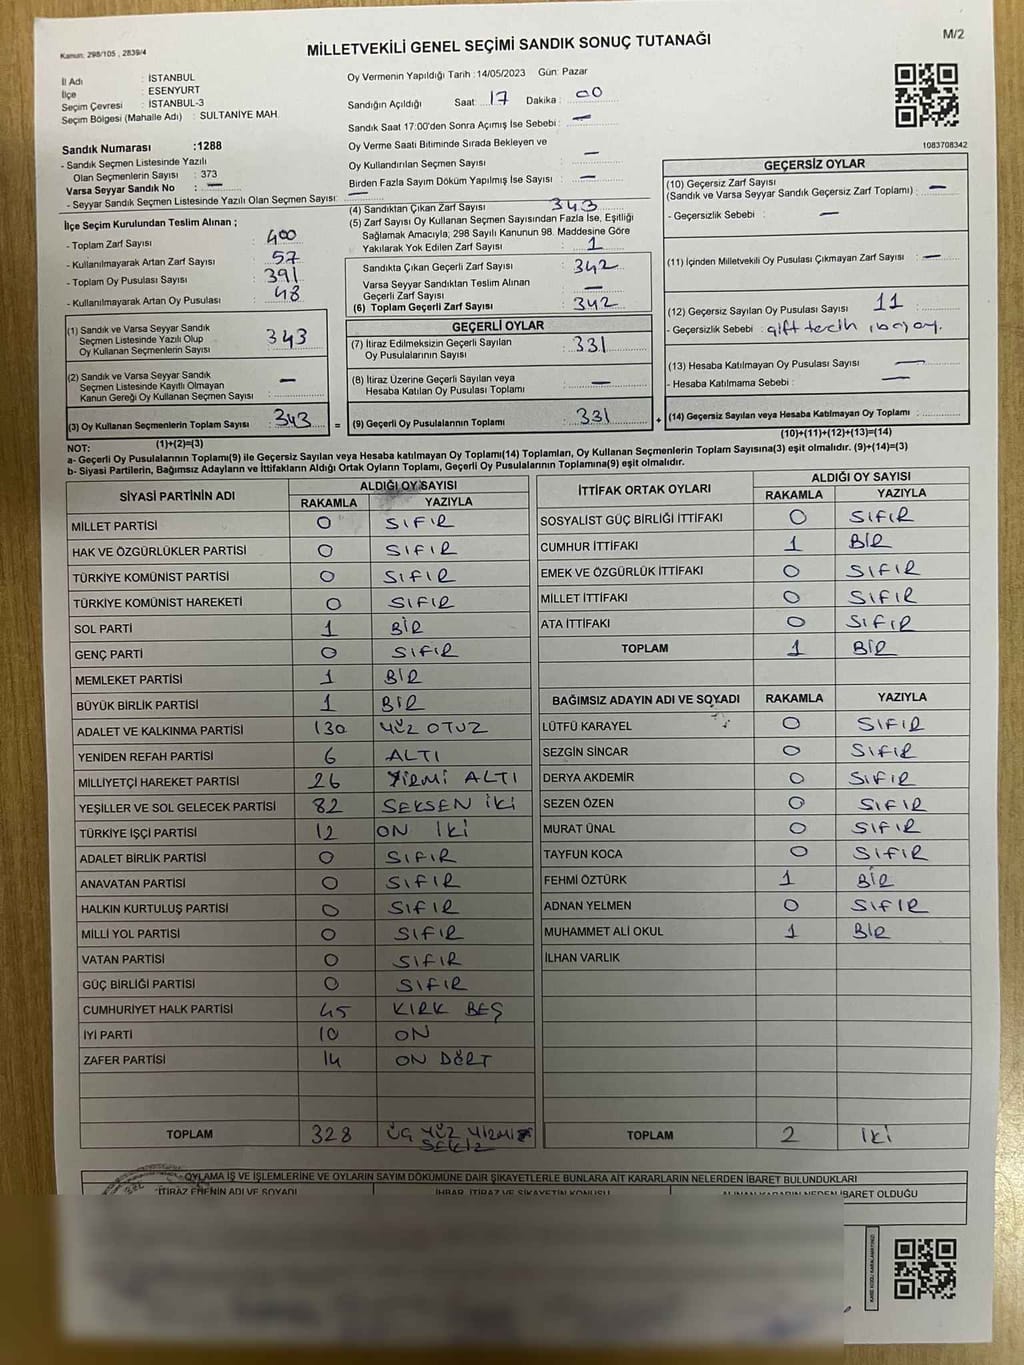 Kanun: 298/105 , 2839/4
MİLLETVEKİLİ GENEL SEÇİMİ SANDIK SONUÇ TUTANAĞI
M/2
İl Adı : İSTANBUL
İlçe : ESENYURT
Seçim Çevresi : İSTANBUL-3
Seçim Bölgesi (Mahalle Adı) : SULTANİYE MAH.
Oy Vermenin Yapıldığı Tarih : 14/05/2023 Gün: Pazar
Sandığın Açıldığı Saat : 17 Dakika : 00
Sandık Saat 17:00'den Sonra Açımış İse Sebebi : —
Oy Verme Saati Bitiminde Sırada Bekleyen ve
Oy Kullandırılan Seçmen Sayısı : —
Birden Fazla Sayım Döküm Yapılmış İse Sayısı : —
1083708342
Sandık Numarası :1288
- Sandık Seçmen Listesinde Yazılı
Olan Seçmenlerin Sayısı : 373
Varsa Seyyar Sandık No : —
- Seyyar Sandık Seçmen Listesinde Yazılı Olan Seçmen Sayısı: —
İlçe Seçim Kurulundan Teslim Alınan ;
- Toplam Zarf Sayısı : 400
- Kullanılmayarak Artan Zarf Sayısı : 57
- Toplam Oy Pusulası Sayısı : 391
- Kullanılmayarak Artan Oy Pusulası : 48
(1) Sandık ve Varsa Seyyar Sandık
Seçmen Listesinde Yazılı Olup
Oy Kullanan Seçmenlerin Sayısı : 343
(2) Sandık ve Varsa Seyyar Sandık
Seçmen Listesinde Kayıtlı Olmayan
Kanun Gereği Oy Kullanan Seçmen Sayısı : —
(3) Oy Kullanan Seçmenlerin Toplam Sayısı : 343
(1)+(2)=(3)
(4) Sandıktan Çıkan Zarf Sayısı : 343
(5) Zarf Sayısı Oy Kullanan Seçmen Sayısından Fazla İse, Eşitliği
Sağlamak Amacıyla; 298 Sayılı Kanunun 98. Maddesine Göre
Yakılarak Yok Edilen Zarf Sayısı : 1
Sandıkta Çıkan Geçerli Zarf Sayısı : 342
Varsa Seyyar Sandıktan Teslim Alınan
Geçerli Zarf Sayısı : —
(6) Toplam Geçerli Zarf Sayısı : 342
GEÇERLİ OYLAR
(7) İtiraz Edilmeksizin Geçerli Sayılan
Oy Pusulalarının Sayısı : 331
(8) İtiraz Üzerine Geçerli Sayılan veya
Hesaba Katılan Oy Pusulası Toplamı : —
= (9) Geçerli Oy Pusulalarının Toplamı : 331 +
GEÇERSİZ OYLAR
(10) Geçersiz Zarf Sayısı
(Sandık ve Varsa Seyyar Sandık Geçersiz Zarf Toplamı) : —
- Geçersizlik Sebebi : —
(11) İçinden Milletvekili Oy Pusulası Çıkmayan Zarf Sayısı : —
(12) Geçersiz Sayılan Oy Pusulası Sayısı : 11
- Geçersizlik Sebebi : çift tercih
(13) Hesaba Katılmayan Oy Pusulası Sayısı : —
- Hesaba Katılmama Sebebi : —
(14) Geçersiz Sayılan veya Hesaba Katılmayan Oy Toplamı :
(10)+(11)+(12)+(13)=(14)
NOT:
a- Geçerli Oy Pusulalarının Toplamı(9) ile Geçersiz Sayılan veya Hesaba katılmayan Oy Toplamı(14) Toplamları, Oy Kullanan Seçmenlerin Toplam Sayısına(3) eşit olmalıdır. (9)+(14)=(3)
b- Siyasi Partilerin, Bağımsız Adayların ve İttifakların Aldığı Ortak Oyların Toplamı, Geçerli Oy Pusulalarının Toplamına(9) eşit olmalıdır.
SİYASİ PARTİNİN ADI ALDIĞI OY SAYISI
RAKAMLA YAZIYLA
MİLLET PARTİSİ 0 SIFIR
HAK VE ÖZGÜRLÜKLER PARTİSİ 0 SIFIR
TÜRKİYE KOMÜNİST PARTİSİ 0 SIFIR
TÜRKİYE KOMÜNİST HAREKETİ 0 SIFIR
SOL PARTİ 1 BİR
GENÇ PARTİ 0 SIFIR
MEMLEKET PARTİSİ 1 BİR
BÜYÜK BİRLİK PARTİSİ 1 BİR
ADALET VE KALKINMA PARTİSİ 130 YÜZ OTUZ
YENİDEN REFAH PARTİSİ 6 ALTI
MİLLİYETÇİ HAREKET PARTİSİ 26 YİRMİ ALTI
YEŞİLLER VE SOL GELECEK PARTİSİ 82 SEKSEN İKİ
TÜRKİYE İŞÇİ PARTİSİ 12 ON İKİ
ADALET BİRLİK PARTİSİ 0 SIFIR
ANAVATAN PARTİSİ 0 SIFIR
HALKIN KURTULUŞ PARTİSİ 0 SIFIR
MİLLİ YOL PARTİSİ 0 SIFIR
VATAN PARTİSİ 0 SIFIR
GÜÇ BİRLİĞİ PARTİSİ 0 SIFIR
CUMHURİYET HALK PARTİSİ 45 KIRK BEŞ
İYİ PARTİ 10 ON
ZAFER PARTİSİ 14 ON DÖRT
TOPLAM 328 ÜÇ YÜZ YİRMİ
SEKİZ
İTTİFAK ORTAK OYLARI ALDIĞI OY SAYISI
RAKAMLA YAZIYLA
SOSYALİST GÜÇ BİRLİĞİ İTTİFAKI 0 SIFIR
CUMHUR İTTİFAKI 1 BİR
EMEK VE ÖZGÜRLÜK İTTİFAKI 0 SIFIR
MİLLET İTTİFAKI 0 SIFIR
ATA İTTİFAKI 0 SIFIR
TOPLAM 1 BİR
BAĞIMSIZ ADAYIN ADI VE SOYADI RAKAMLA YAZIYLA
LÜTFÜ KARAYEL 0 SIFIR
SEZGİN SİNCAR 0 SIFIR
DERYA AKDEMİR 0 SIFIR
SEZEN ÖZEN 0 SIFIR
MURAT ÜNAL 0 SIFIR
TAYFUN KOCA 0 SIFIR
FEHMİ ÖZTÜRK 1 BİR
ADNAN YELMEN 0 SIFIR
MUHAMMET ALİ OKUL 1 BİR
İLHAN VARLIK
TOPLAM 2 İKİ
OYLAMA İŞ VE İŞLEMLERİNE VE OYLARIN SAYIM DÖKÜMÜNE DAİR ŞİKAYETLERLE BUNLARA AİT KARARLARIN NELERDEN İBARET BULUNDUKLARI
İTİRAZ EDENİN ADI VE SOYADI İHBAR, İTİRAZ VE ŞİKAYETİN KONUSU ALINAN KARARIN NEDEN İBARET OLDUĞU
KARE KODU KARALAMAYINIZ!